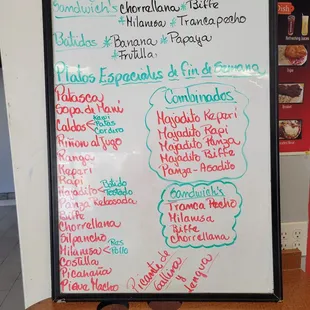 Sandwich's Chorrellana * Biffe
* Milanusa * Trancapecho
Batidos * Banana * Papaya
* Frutilla
Platos Especiales de Fin de Semana
Patasca
Sopa de Mani
Caldos Kapi
Patas
Cordero
Riñon al jugo
Ranga
Kepari
Kapi
Majadito Batido
Tostado
Panza Rebosada
Biffe
Chorrellana
Silpancho
Milanesa Res
Pollo
Costilla
Picahaña
Pique Macho
Picante de
Gallina
y
Lengua
Combinados
Majadito Kepari
Majadito Kapi
Majadito Panza
Majadito Biffe
Panza - Asadito
Sandwich's
Tranca Pecho
Milanusa
Biffe
Chorrellana